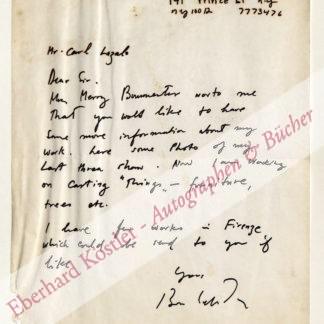 141 Prince St ny
ny 10012 7773476
Mr. Carl Lazslo
Dear Sir.
Mr. Merry Baumenter wrote me
That you would like to have
Some more information about my
work. here some Photo of my
last three show. Now I am working
on casting "Things", - furniture,
trees etc.
I have few works in Firenze
which could be send to you if
like
Yours
Eberhard Köstler - Autographen & Bücher